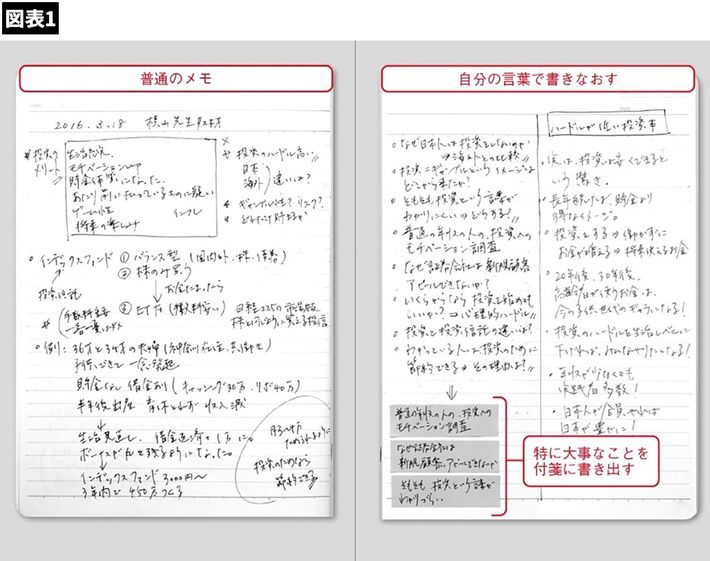 図表1
普通のメモ
2016.3.18
投資の
メリート
生活防衛
モチベーションup
貯金体質になった
ゲーム性
インフレ
将来の楽しみ
投資のハードル高い
日本
海外 違いは?
ギャンブル性? リスク?
インデックスファンド ①バランス型(国内外、株・債券)
②株のみ買う
お金たまったら
投資信託
③ETF(手数料安い)
日経225の
例:36才と34才の夫婦(神奈川在住、共働き)
貯金なし 借金あり(キャッシング30万、リボ40万)
半年後出産 育休とらず 収入減
生活見直し、借金返済
インデックスファンド3000円〜
3年内で450万つくる
投資のためなら
節約できる
自分の言葉で書きなおす
なぜ日本人は投資をしないのか
⇒海外との比較
投資=ギャンブルというイメージは
どこから来たか?
そもそも投資という言葉が
わかりにくい⇒どうする?
普通の年収の人の、投資への
モチベーション調査
なぜ証券会社は新規顧客
アピールできないか?
いくらからなら投資を始めても
いいか?⇒心理的ハードル
投資と投資信託の違いは?
わかっている人は投資のために
節約できる⇒その理由は?
普通の年収の人の、投資への
モチベーション調査
なぜ証券会社は
新規顧客にアピールできないか
そもそも投資という言葉が
わかりづらい
ハードルが低い投資本
実は、投資は安くできると
いう驚き。
長年続ければ、貯金より
得なイメージ。
投資をする⇒働かずに
お金が増える⇒将来使えるお金
20年後、30年後、
高齢者が使うお金は、
今の子供世代のギャラになる!
投資のハードルを生活レベルに
下げれば、みんなやりたくなる!
年収が少なくても
成功者多数!
日本人が全員やれば
日本が豊かに!
特に大事なことを
付箋に書き出す